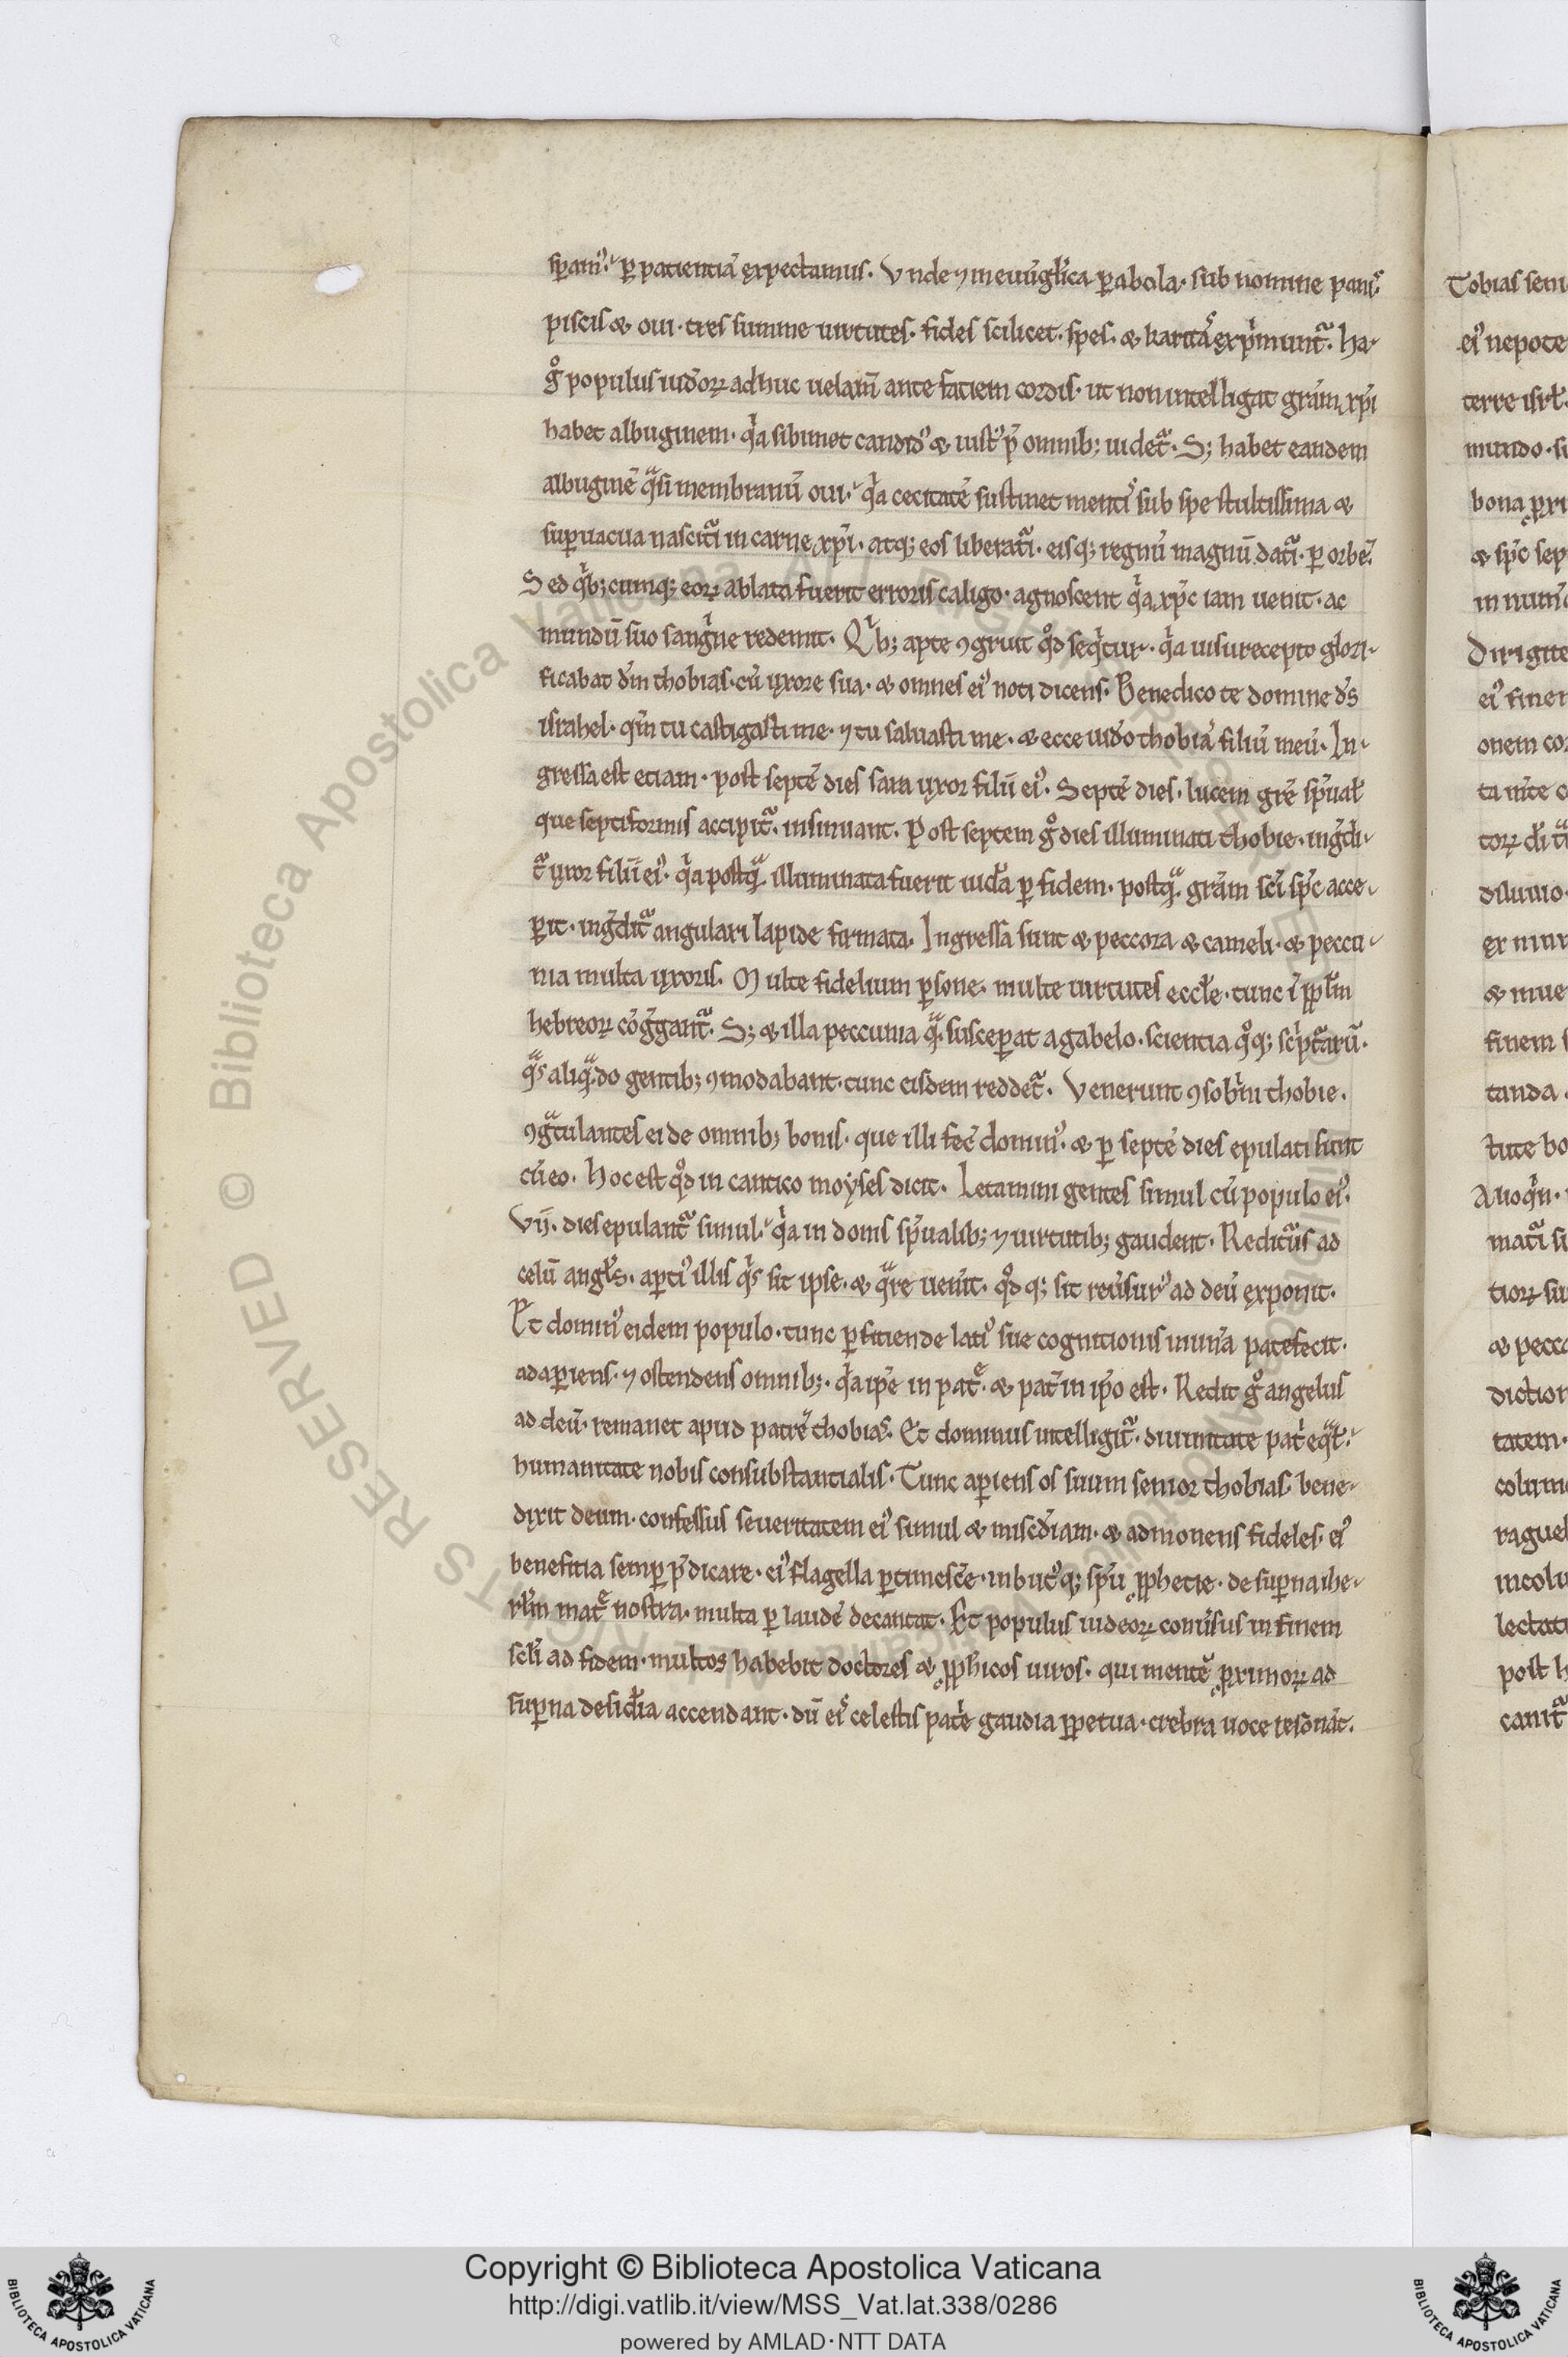 sꝑam᷒. ꝑ patientiā expectamus. Vnde ⁊ in euu̅gl̓ica ꝑabola. sub nomine panis
piscis & oui. tres summe uirtutes. fides scilicet. spes. & karitas exp̓munt᷑. ha-
g̊ populus iud̓oꝝ adhuc uelam̅ ante faciem cordis. ut non intelligat grām xp̄i
habet albuginem. qͥa sibimet candid᷒ & iust᷒ p̄ omnib; uidet᷑. S; habet eandem
albuginē qͣsi membranū oui. qͥa cecitatē sustinet mentis sub spe stultissima &
suꝑuacua nascit᷑i in carne xp̄i. atq; eos liberat᷑i. eisq; regnū magnū dat᷑i. ꝑ orbē.
Sed qͥb;cumq; eoꝝ ablata fuerit erroris caligo. agnoscent qͥa xp̄c iam uenit. ac
mundū suo sangͥne redemit. Qͥb; apte ꝯgruit qd̊ seqͥtur. qͥa uisu recepto glori-
ficabat dm̄ thobias. cū uxore sua. & omnes ei᷒ noti dicens. Benedico te domine ds̄
israhel. qm̄ tu castigasti me. ⁊ tu saluasti me. & ecce uid̓o thobiā filiū meū. In-
gressa est etiam. post septē dies sara uxor filii ei᷒. Septē dies. lucem grē sp̄ual̓
que septiformis accipit᷑. insinuant. Post septem g̊ dies illuminati thobie. ing̓di-
t᷑ uxor filii ei᷒. qͥa postqͣ. illuminata fuerit iud̓a ꝑ fidem. postqͣ. grām sc̄i sp̄c acce-
ꝑit. ing̓dit᷑ angulari lapide firmata. Ingressa sunt & peccora & cameli. & peccu-
nia multa uxoris. Multe fidelium ꝑsone. multe uirtutes eccl̓e. tunc ī ppl̓m
hebreoꝝ cōg̓gant᷑. S; & illa peccunia qͣ. susceꝑat a gabelo. scientia qͦq; scͥpt᷑arū.
qͣs aliqͣdo gentib; ꝯmodabant. tunc eisdem reddet᷑. Venerunt ꝯsobͥni thobie.
ꝯgͣtulantes ei de omnib; bonis. que illi fec̄ domin᷒. & ꝑ septē dies epulati sunt
cū eo. Hoc est qd̊ in cantico moyses dicit. Letamini gentes simul cū populo ei᷒.
Vij. dies epulant᷑ simul. qͥa in donis sp̄ualib; ⁊ uirtutib; gaudent. Reditur᷒ ad
celū angl̓s. aꝑti᷒ illis qͥs sit ipse. & qͣre uenit. qd̊ q; sit reūsur᷒ ad deū exponit.
Et domin᷒ eidem populo. tunc ꝑficiende lati᷒ sue cognitionis mun̓a patefecit.
adaꝑiens. ⁊ ostendens omnib;. qͥa ip̄e in patͤ. & pat̓ in ip̄o est. Redit g̊ angelus
ad deū. remanet apud patrē thobias. Et dominus intelligit᷑. diuinitate patͥ eqͣl̓.
humanitate nobis consubstantialis. Tunc aꝑiens os suum senior thobias. bene-
dixit deum. confessus seueritatem ei᷒ simul & misc̓diam. & admonens fideles. ei᷒
benefitia semꝑ p̄dicare. ei᷒ flagella ꝑtimesc̄e. inbut᷒q; sp̄u ꝓphetie. de suꝑna ihe-
rl̓m matͤ nostra. multa ꝑ laudē decantat. Et populus iudeoꝝ conūsus in finem
scl̓i ad fidem. multos habebit doctores & ꝓphicos uiros. qui mentē ꝓximoꝝ ad
suꝑna desid̓ia accendant. dū ei᷒ celestis patͥe gaudia ꝑpetua. crebra uoce resonāt.
Copyright © Biblioteca Apostolica Vaticana
http://digi.vatlib.it/view/MSS_Vat.lat.338/0286
powered by AMLAD·NTT DATA